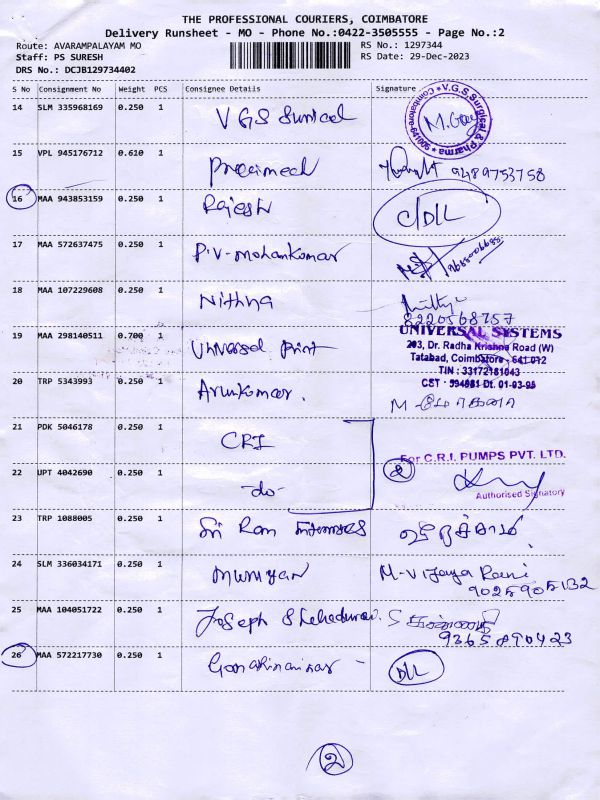 THE PROFESSIONAL COURIERS, COIMBATORE
Delivery Runsheet - MO - Phone No.:0422-3505555 - Page No.:2
Route: AVARAMPALAYAM MO
RS No.: 1297344
Staff: PS SURESH
RS Date: 29-Dec-2023
DRS No.: DCJB129734402
S No Consignment No Weight PCS Consignee Details Signature
14 SLM 335968169 0.250 1 VGS Surgical
V.G.S. Surgical & Pharma * Coimbatore-641006 *
15 VPL 945176712 0.610 1 9489753758
16 MAA 943853159 0.250 1 Rajesh C/DL
17 MAA 572637475 0.250 1 P.V-Mohankumar
18 MAA 107229608 0.250 1 Nithya
8220568757
19 MAA 298140511 0.700 1 Universal Print
UNIVERSAL SYSTEMS
203, Dr. Radha Krishna Road (W)
Tatabad, Coimbatore - 641 012
TIN : 33172181043
20 TRP 5343993 0.250 1 Arunkumar.
21 PDK 5046178 0.250 1 CRI
For C.R.I. PUMPS PVT. LTD.
22 UPT 4042690 0.250 1 -do- 2
Authorised Signatory
23 TRP 1088005 0.250 1 Sri Ram
24 SLM 336034171 0.250 1 Muniyan M-Vijaya Rani
9025905132
25 MAA 104051722 0.250 1 Joseph
9365890423
26 MAA 572217730 0.250 1 D/L
2